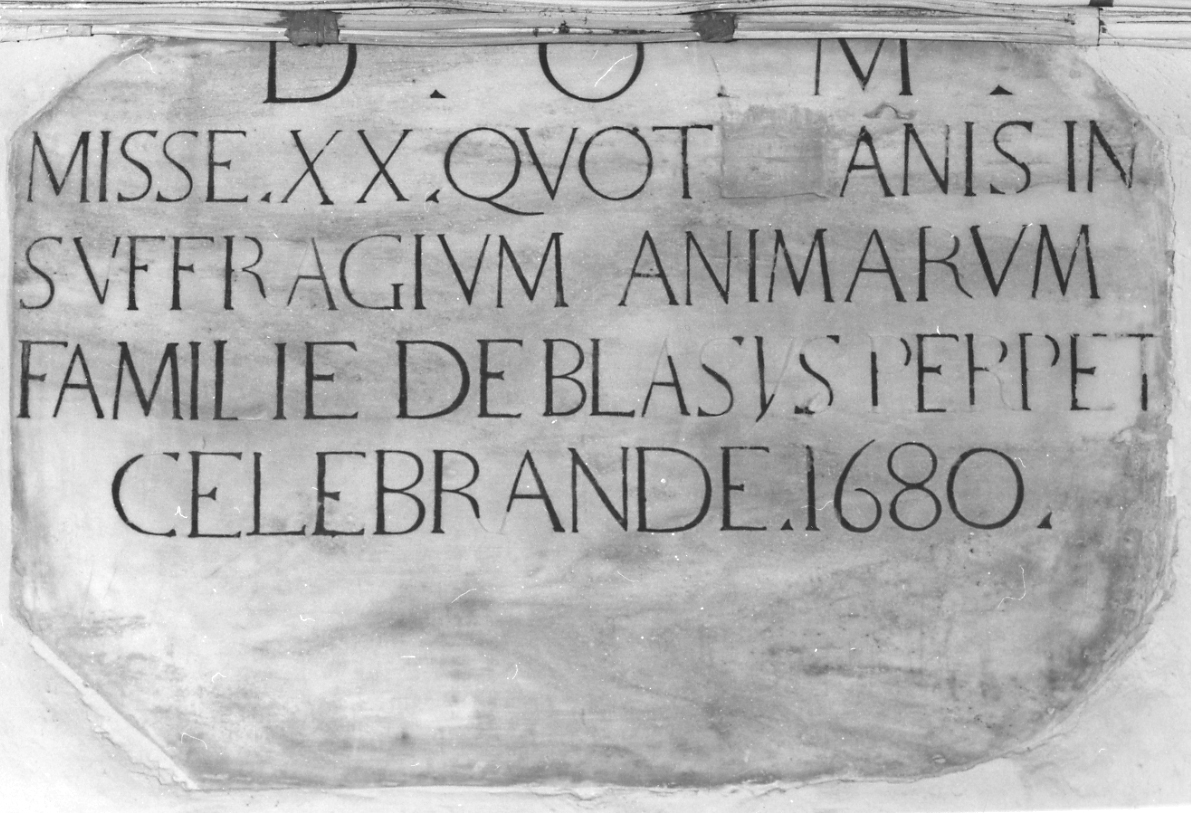 D . O . M .
MISSE.XX.QVOT ANIS IN
SVFFRAGIVM ANIMARVM
FAMILIE DE BLASVS PERPET
CELEBRANDE.1680.